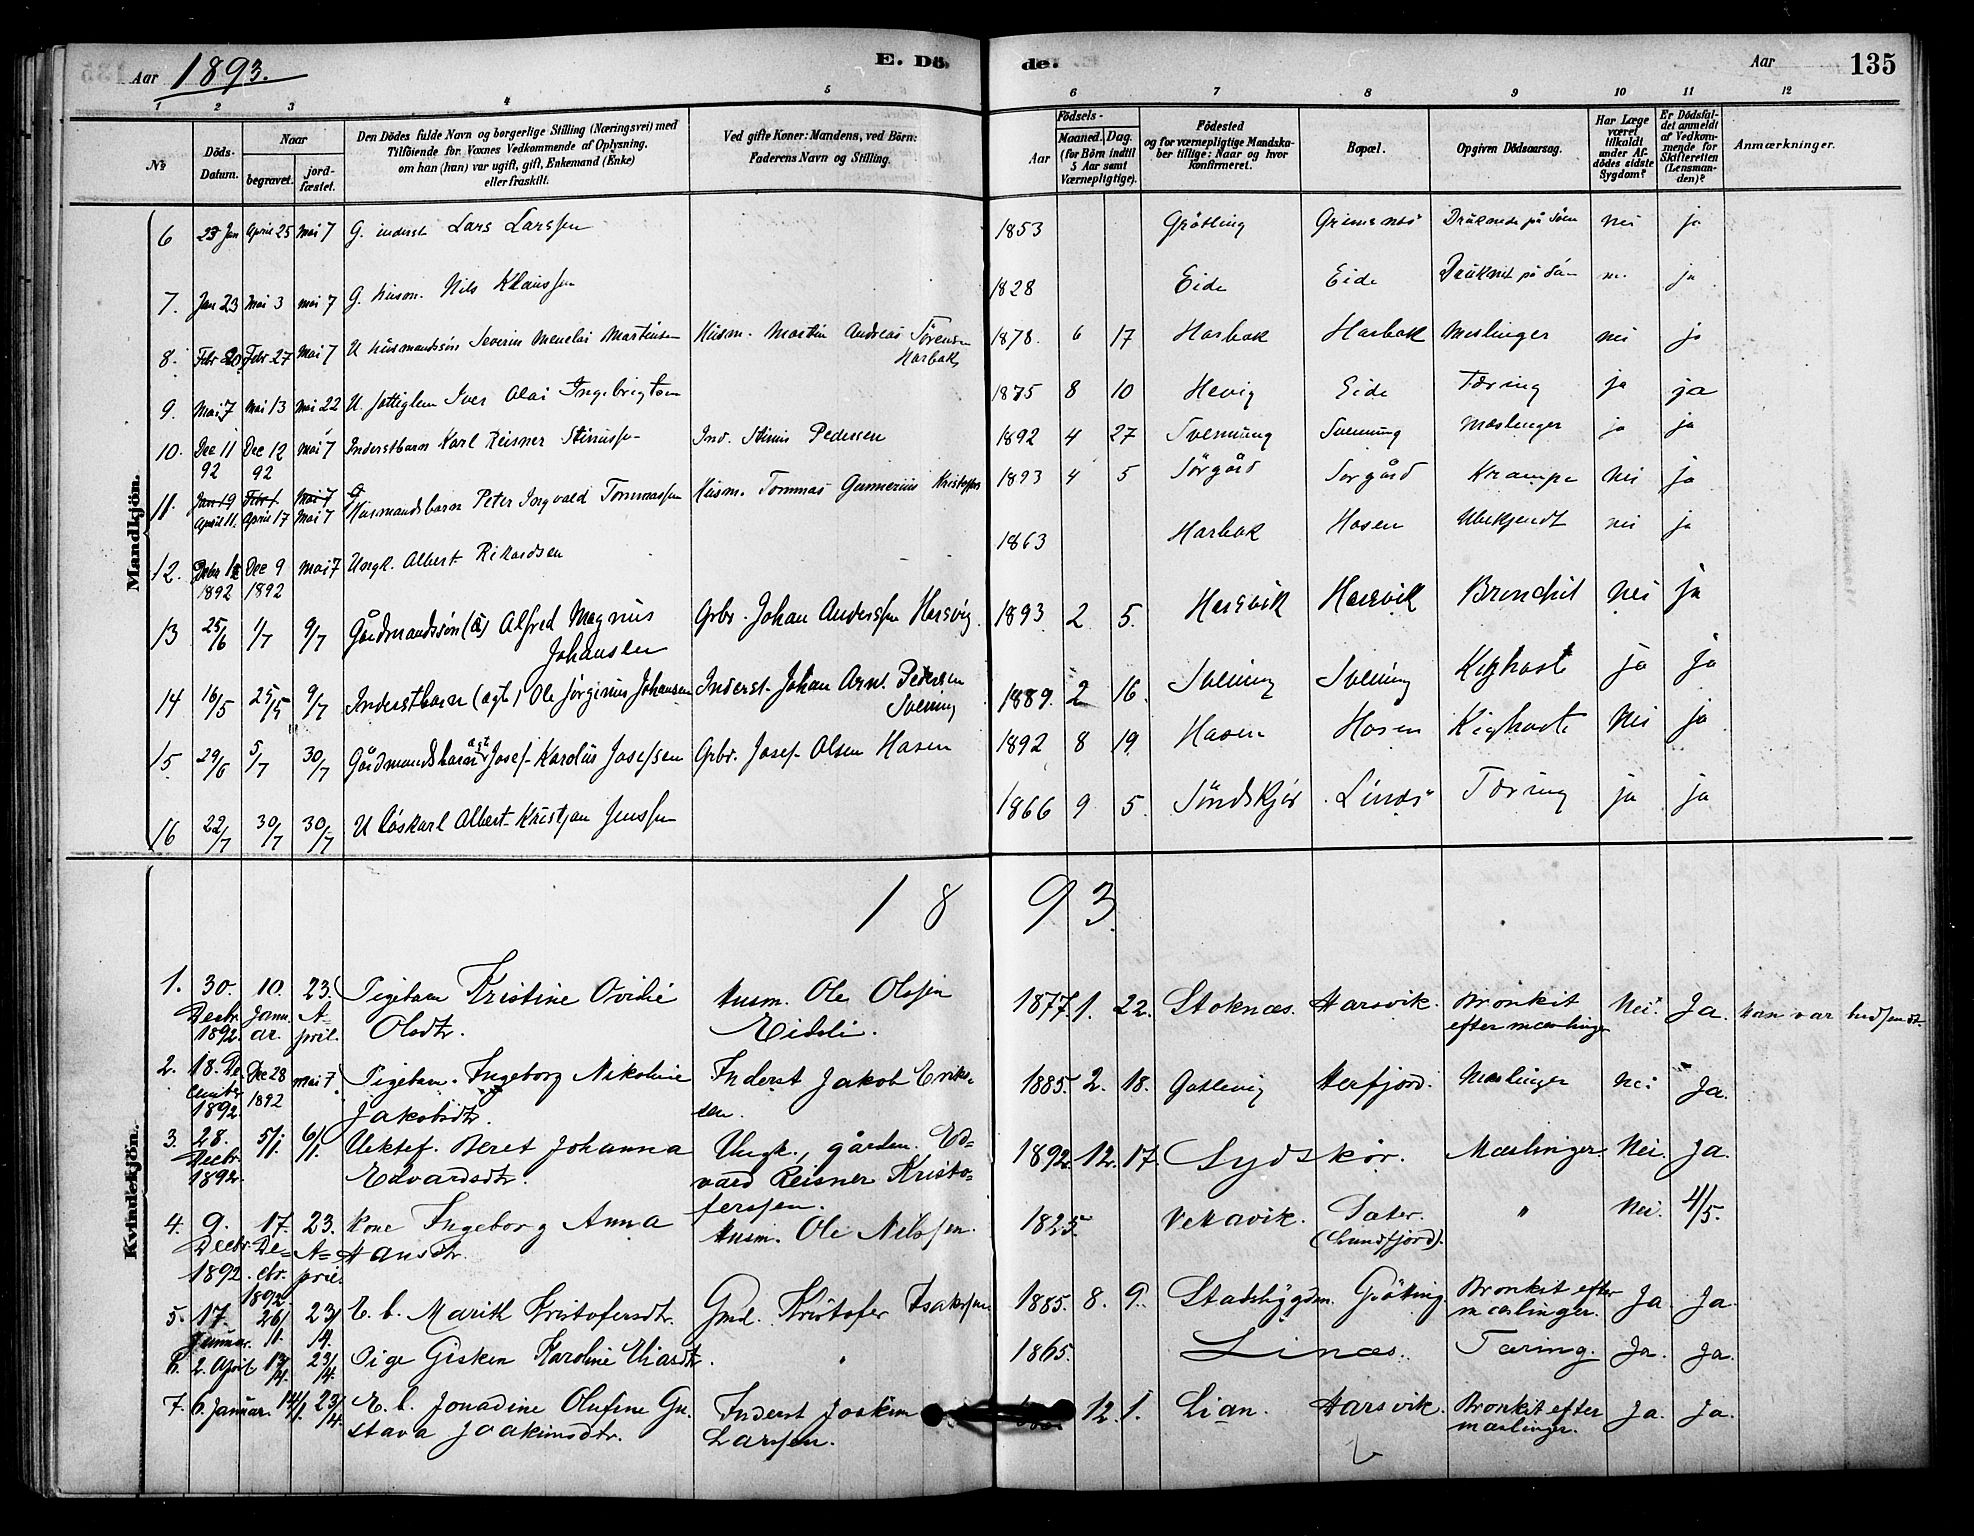 Aar 1893. E. Dö- de. Aar 135
1 2 3 4 5 6 7 8 9 10 11 12
№ Döds-Datum. Naar begravet. jord-fæstet. Den Dödes fulde Navn og borgerlige Stilling (Næringsvei) med Tilföiende for Voxnes Vedkommende af Oplysning, om han (hun) var ugift, gift, Enkemand (Enke) eller fraskilt. Ved gifte Koner: Mandens, ved Börn: Faderens Navn og Stilling. Födsels- Aar Maaned. Dag. (for Börn indtil 5 Aar samt Værnepligtige). Födested og for værnepligtige Mandskaber tillige: Naar og hvor konfirmeret. Bopæl. Opgiven Dödsaarsag. Har Læge været tilkaldt under Afdödes sidste Sygdom? Er Dödsfaldet anmeldt af Vedkommende for Skifteretten (Lensmanden)? Anmærkninger.
Mandkjön.
6 23 Jan April 25 mai 7 G. inderst Lars Larssen 1853 Grötting Grimsnes Druknede på Söen nei ja
7. Jan 23 Mai 3 mai 7 G. husm. Nils Klaussen 1828 Eide Eide Druknet på ja
8. Febr 20 Febr 27 Mai 7 U husmandssön Severin Menelai Martinsen Husm. Martin Andreas Sörensen Harbak 1878. 6 17 Harbak Harbak Meslinger nei ja
9. Mai 7 Mai 13 Mai 22 U. fattiglem Iver Olai Ingebrigtsen 1875 8 10 Hevig Eide Tæring ja ja
10. Dec 11 92 Dec 12 92 mai 7 Inderstbarn Karl Reisner Stinussen Ind. Stinus Pedersen 1892 4 27 Svenning Svenning Mæslinger ja ja
11. Jan 19 Febr 1 Mai 7
April 11. April 17 Mai 7 Husmandsbarn Peter Ingvald Tommassen Husm. Tommas Gunnerius Kristoffers 1893 4 5 Sörgård Sorgård Krampe nei ja
12. 1892 Dec 9 1892 mai 7 Ungk. Albert Rikardsen 1863 Harbak Hosen Ubekjendt nei ja
13 25/6 1/7 9/7 Gårdmandssön Alfred Magnus Johansen Grbr. Johan Anderssen Hersvig 1893 2 5. Harsvik Harsvik Bronchit Nei ja
14 16/5 25/5 9/7 Inderstbarn (ægt.) Ole Jörginus Johansen Inderst. Johan Arnt Pedersen Svening 1889. 2 16. Svening Svening Kighoste ja ja
15 29/6 5/7 30/7 Gårdmandsbarn ægt Josef Karolius Josefsen Grbr. Josef Olsen Hasen 1892 8 19 Hasen Hosen Kighoste Nei ja
16 22/7 30/7 30/7 U Löskarl Albert Kristjan Jenssen 1866 9 5. Söndskjör Linæs Tæring ja ja
1893
Kvindekjön.
1. 30. Decbr. 1892. 10. Januar. 23. April. Pigebarn Kristine Ovidie Olsdtr. Husm. Ole Olssen Eidsli. 1877. 1. 22. Stoknæs. Harsvik. Bronkit efter mæslinger Nei. Ja. han var budsendt.
2. 18. December 1892. Dec 28 1892 mai 7 Pigebarn. Ingeborg Nikoline Jakobsdtr. Inderst Jakob Eriksen. 1885. 2. 18. Herfjord. Mæslinger nei Ja.
3. 28. Decbr. 1892. 5/1. 6/1. Uektef. Beret Johanna Edvardsdtr. Ungk., gården. Edvard Reisner Kristofersen. 1892. 12. 17. Sydskör. Mæslinger. Nei. Ja.
4. 9. Decbr. 1892. 17. Decbr. 1892. 23. April. Kone Ingeborg Anna Hansdtr. Husm. Ole Nilssen. 1825. Vekavik. Sæter. (Sundfjord). " Nei. 4/5.
5. 17. Januar. 26/1. 23/4. E. b. Marith Kristofersdtr. Gmd. Kristofer Isaksen 1885. 8. 9. Stadsbygden. Gröting. Bronkit efter mæslinger. Ja. Ja.
6. 2. April. 13/4. 23/4. Pige Gisken Karoline Eliasdtr. " 1865. Linæs. Tæring. Ja. Ja.
7. 6. Januar. 14/1. 23/4. E. b. Jonadine Olufine Gustava Joakimsdtr. Inderst Joakim Larssen. 12. 1. Lian. Harsvik. Bronkit efter mæslinger. Ja. Ja.